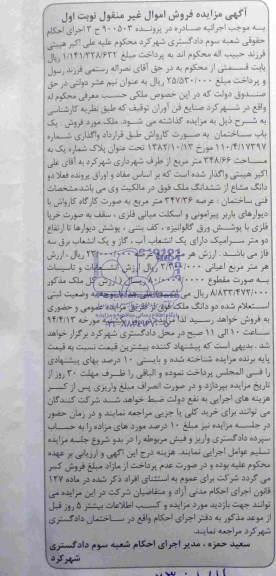 آگهی مزایده فروش اموال غیر منقول نوبت اول
به موجب اجرائیه صادره در پرونده ۹۰۰۵۰۳ ح ۳ اجرای احکام
حقوقی شعبه سوم دادگستری شهرکرد محکوم علیه علی اکبر هیبتی
فرزند حبیب اله محکوم اند به پرداخت مبلغ ۱/۱۴۱/۳۲۸/۶۳۲ ریال
بابت قسمتی از محکوم به در حق آقای نصراله رستمی فرزند رسول
و پرداخت مبلغ ۲۵/۵۳۰/۰۰۰ ریال به عنوان نیم عشر دولتی در حق
صندوق دولت که در این خصوص ملکی حسب معرفی محکوم له
واقع در شهرکرد صنایع فن آوران توقیف که طبق نظریه کارشناسی
به شرح ذیل به مزایده گذاشته می شود. ملک مورد فروش یک
باب ساختمان به صورت کارواش طبق قرارداد واگذاری شماره
۱۱۰/۴۱۷۳۹۷ مورخ ۱۳۸۲/۱۰/۱۳ تحت عنوان پلاک شماره یک به
مساحت ۳۴۸/۶۶ متر مربع از طرف شهرداری شهرکرد به آقای علی
اکبر هیبتی واگذار شده است که بر اساس مفاد و اوراق پرونده فعلا دو
دانگ مشاع از ششدانگ ملک فوق در مالکیت وی می باشد. مشخصات
فنی ساختمان : عرصه ۳۴۷/۳۶ متر مربع به صورت کارگاه کارواش با
دیوارهای باربر پیرامونی و اسکلت میانی فلزی ، سقف به صورت خرپا
فلزی با پوشش ورق گالوانیزه ، کف بتنی ، پوشش دیوارها تا ارتفاع
دو متر سرامیک دارای یک انشعاب آب ، گاز و یک انشعاب برق سه
فاز می باشد. ارزش هر متر مربع عرصه ریال ، ارزش
هر متر مربع اعیانی ریال ارزش و تاسیسات
به صورت مقطوع ریال ارزش کل ملک مذکور
۸/۸۳۳/۴۷۲/۰۰۰ ریال می وضعیت ثبتی
استعلام شد. دو دانگ ملک فوق از طریق مزایده عمومی و حضوری
به فروش خواهد رسید لذا مزایده مورخه ۹۴/۴/۱۳
ساعت ۱۰ الی ۱۱ صبح در محل دادگستری شهرکرد برگزار خواهد
شد .بدیهی است که پیشنهاد کننده بیشترین قیمت نسبت به قیمت
پایه برنده مزایده شناخته شده و بایستی ۱۰ درصد بهای پیشنهادی
را فی المجلس پرداخت نموده و الباقی را ظرف مهلت ۳۰ روز از
تاریخ مزایده بپردازد و در صورت انصراف مبلغ واریزی پس از کسر
هزینه های اجرایی به نفع دولت ضبط خواهد شد شرکت کنندگان
می توانند برای خرید کلی یا جزیی مراجعه نمایند و در زمان حضور
در جلسه مزایده نیز مبلغ ۱۰ درصد مورد های مزاده را به حساب
سپرده دادگستری واریز و فیش مربوطه را در بدو شروع جلسه مزایده
تسلیم عوامل اجرایی نمایند. هزینه درج این آگهی و ارزیابی بر عهده
محکوم علیه بوده و در صورت عدم پرداخت از مازاد مبلغ فروش کسر
می گردد شرکت برای عموم به استثنای افراد ذکر شده در ماده ۱۲۷
قانون اجرای احکام مدنی آزاد و متقاضیان شرکت در این مزایده می
توانند جهت بازدید مورد مزایده و کسب اطلاعات بیشتر ۵ روز قبل
از موعد مذکور به دفتر اجرای احکام واقع در ساختمان دادگستری
شهرکرد مراجعه نمایند.
سعید حمزه ، مدیر اجرای احکام شعبه سوم دادگستری
شهرکرد